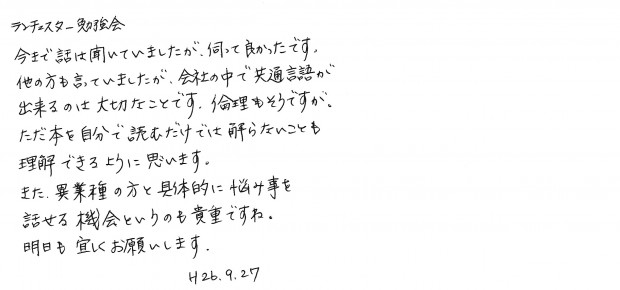 ランチェスター勉強会
今まで話は聞いていましたが、伺って良かったです。
他の方も言っていましたが、会社の中で共通言語が
出来るのは大切なことです。倫理もそうですが。
ただ本を自分で読むだけでは解らないことも
理解できるように思います。
また、異業種の方と具体的に悩み事を
話せる機会というのも貴重ですね。
明日も宜しくお願いします。
H26.9.27